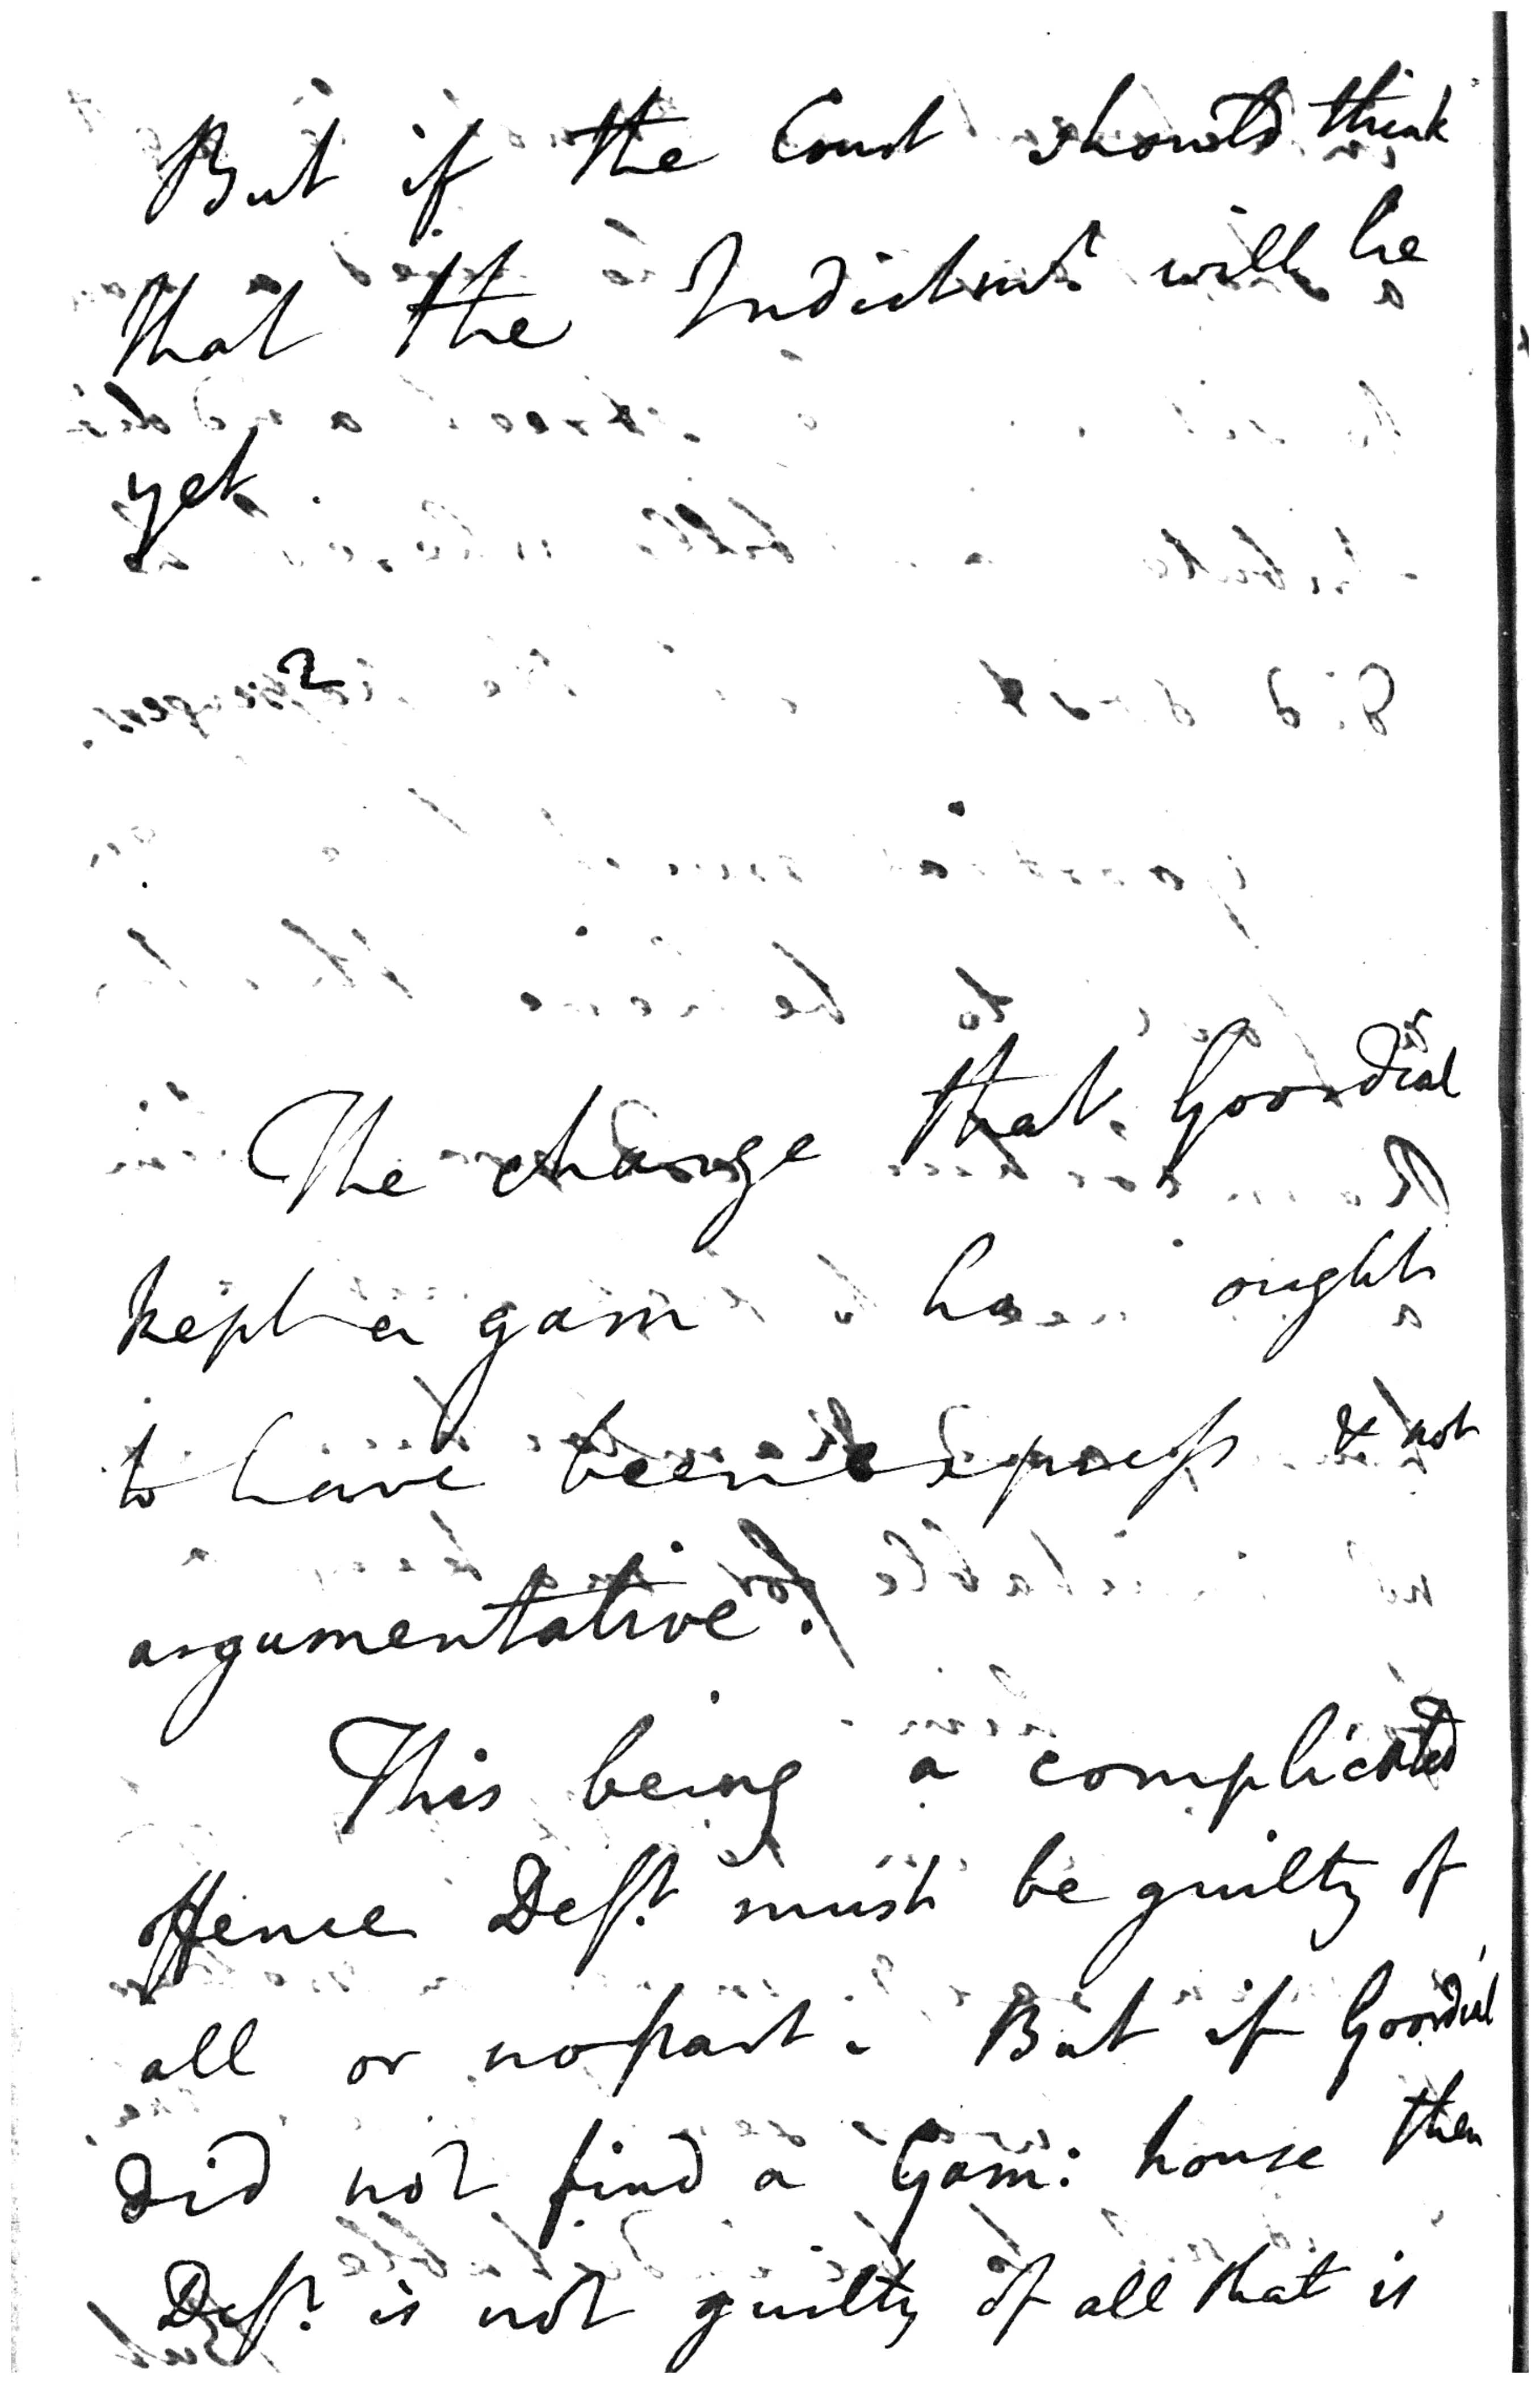 But if the Court should think
that the Indictmt will lie
yet
2
The charge that Goordial
kept a gam ho ought
to have been express & not
argumentative.
This being a complicated
offence Deft must be guilty of
all or no part. But if Goordial
did not find a Gam: house then
Deft is not guilty of all that is